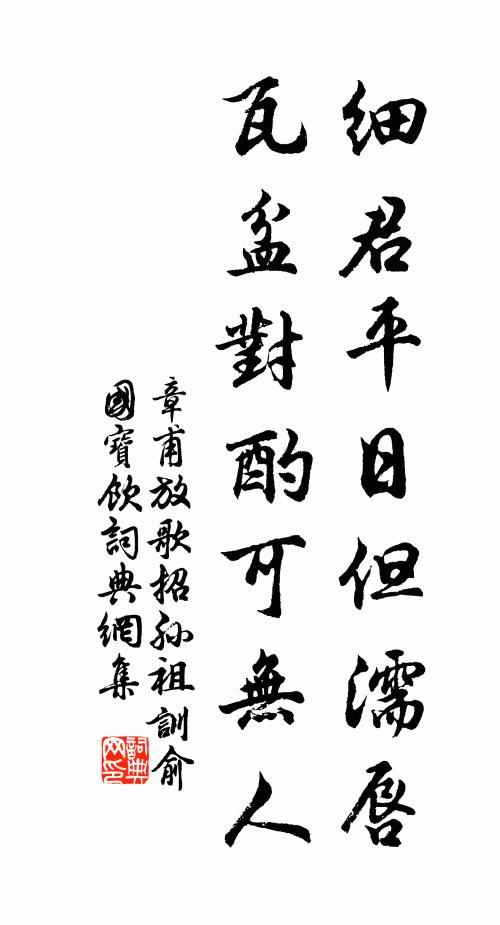 細君平日但濡唇
瓦盆對酌可無人
章甫放歌招孫祖訓俞
國寶飲詞典網集
詞典网印